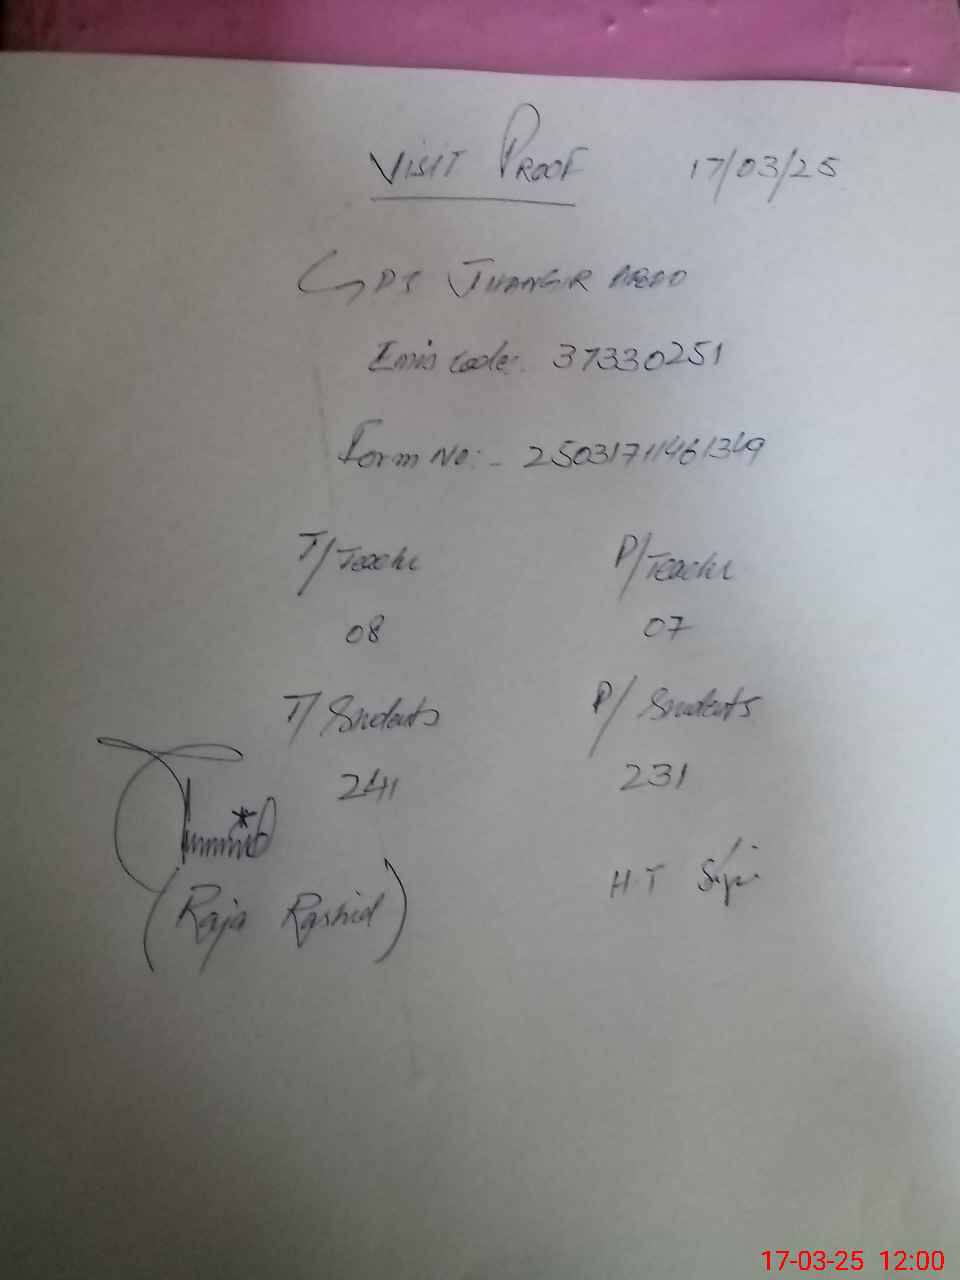 VISIT PROOF 17/03/25
GPS JHANGIR ABAD
Emis code: 37330251
Form No:- 25031711461349
T/Teache P/Teache
08 07
T/Students P/Students
241 231
H.T Sign
(Raja Rashid)
17-03-25 12:00